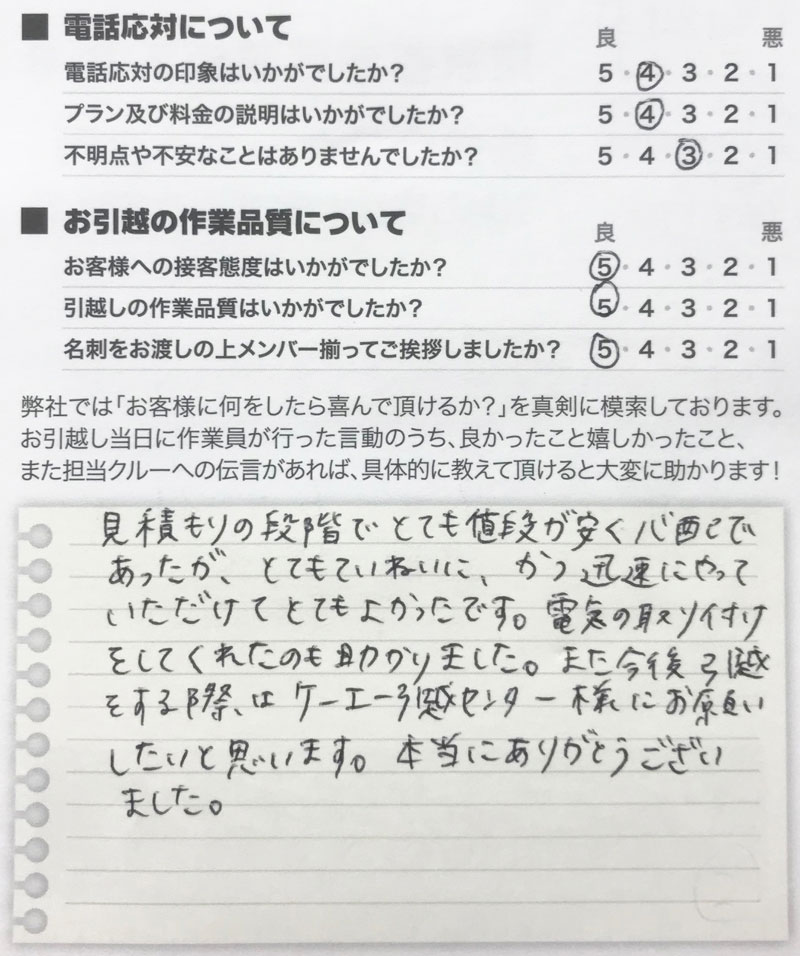 ■ 電話応対について
良 悪
電話応対の印象はいかがでしたか? 5・4・3・2・1
プラン及び料金の説明はいかがでしたか? 5・4・3・2・1
不明点や不安なことはありませんでしたか? 5・4・3・2・1
■ お引越の作業品質について
良 悪
お客様への接客態度はいかがでしたか? 5・4・3・2・1
引越しの作業品質はいかがでしたか? 5・4・3・2・1
名刺をお渡しの上メンバー揃ってご挨拶しましたか? 5・4・3・2・1
弊社では「お客様に何をしたら喜んで頂けるか?」を真剣に模索しております。
お引越し当日に作業員が行った言動のうち、良かったこと嬉しかったこと、
また担当クルーへの伝言があれば、具体的に教えて頂けると大変に助かります!
見積もりの段階でとても値段が安く心配で
あったが、とてもていねいに、かつ迅速にやって
いただけてとてもよかったです。電気の取り付け
をしてくれたのも助かりました。また今後引越
をする際は、ケーエー引越センター様にお願い
したいと思います。本当にありがとうござい
ました。